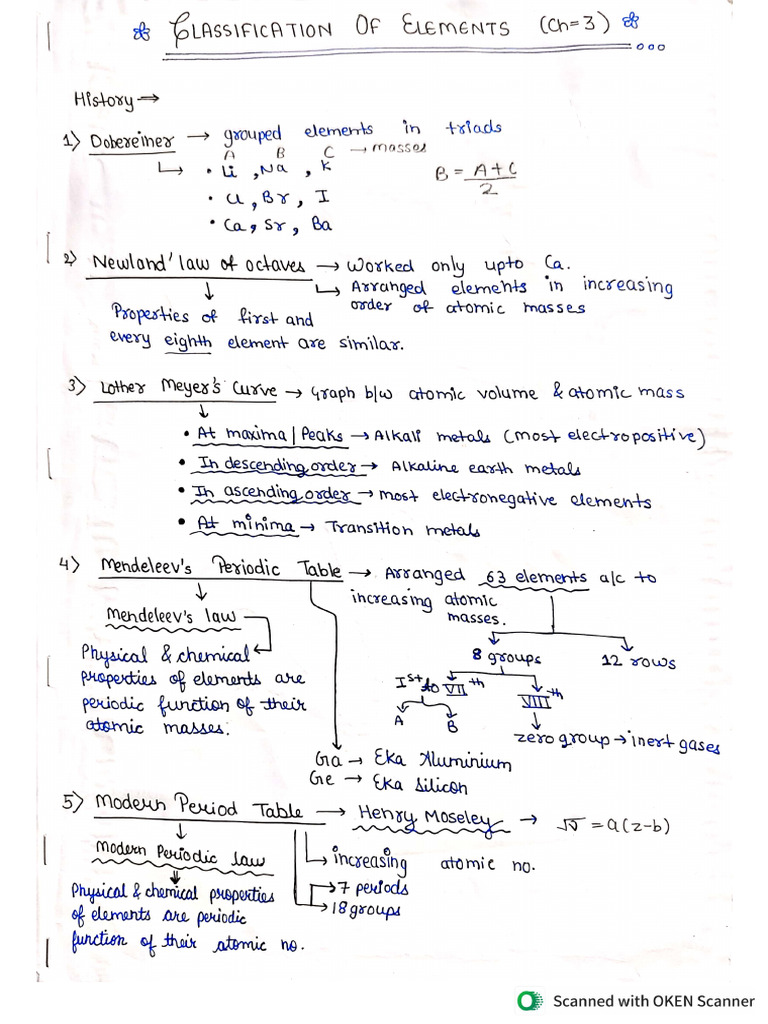 CLASSIFICATION OF ELEMENTS (Ch=3)
History→
1) Dobereiner → grouped elements in triads
A B C → masses
• Li , Na , K
B = A+C
2
• Cl , Br , I
• Ca, Sr, Ba
2) Newland' law of octaves → Worked only upto Ca.
→ Arranged elements in increasing
order of atomic masses
Properties of first and
every eighth element are similar.
3) Lother Meyer's Curve → Graph b/w atomic volume & atomic mass
• At maxima/Peaks → Alkali metals (most electropositive)
• In descending order → Alkaline earth metals
• In ascending order → most electronegative elements
• At minima → Transition metals
4) Mendeleev's Periodic Table → Arranged 63 elements a/c to
increasing atomic
masses.
Mendeleev's law
8 groups 12 rows
Physical & chemical
properties of elements are
periodic function of their
atomic masses.
Ist to VIIth
VIIIth
A B
zero group → inert gases
Ga → Eka Aluminium
Ge → Eka Silicon
5) Modern Period Table → Henry Moseley → √ν = a(z-b)
Modern Periodic law
→ increasing atomic no.
→ 7 periods
→ 18 groups
Physical & chemical properties
of elements are periodic
function of their atomic no.
Scanned with OKEN Scanner